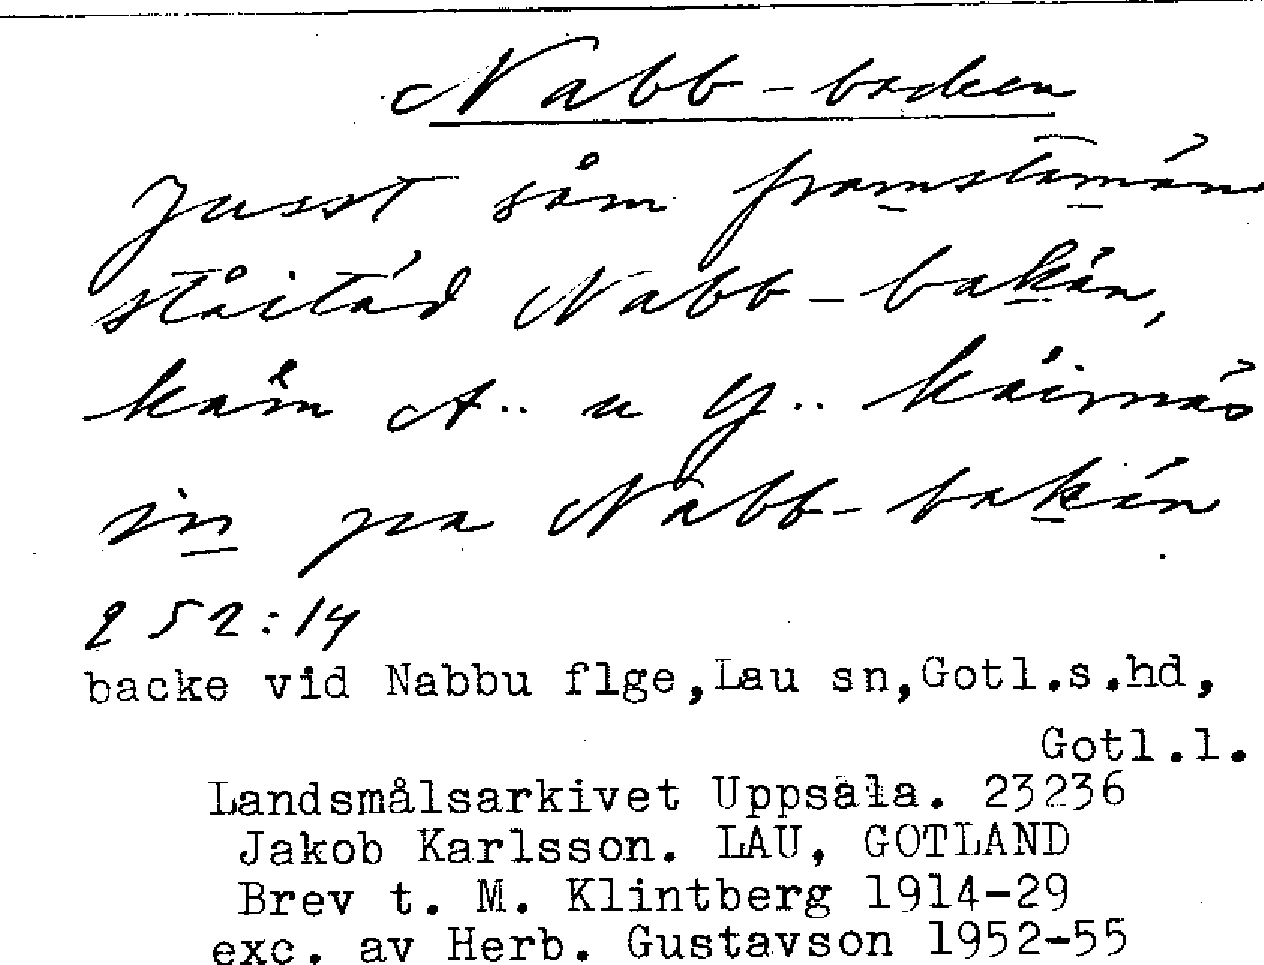 Nabb-backen
Jusst såm framstamän
ståitäd Nabb-bakän,
kåm A.. u G.. káirnäs
in pa Nabb-bakän
252:14
backe vid Nabbu flge,Lau sn,Gotl.s.hd,
Gotl.l.
Landsmålsarkivet Uppsala. 23236
Jakob Karlsson. LAU, GOTLAND
Brev t. M. Klintberg 1914-29
exc. av Herb. Gustavson 1952-55